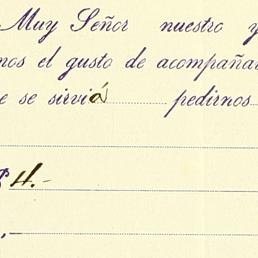 Muy Señor nuestro y
nos el gusto de acompaña
e se sirvió pedirnos
$ 4.-
,—